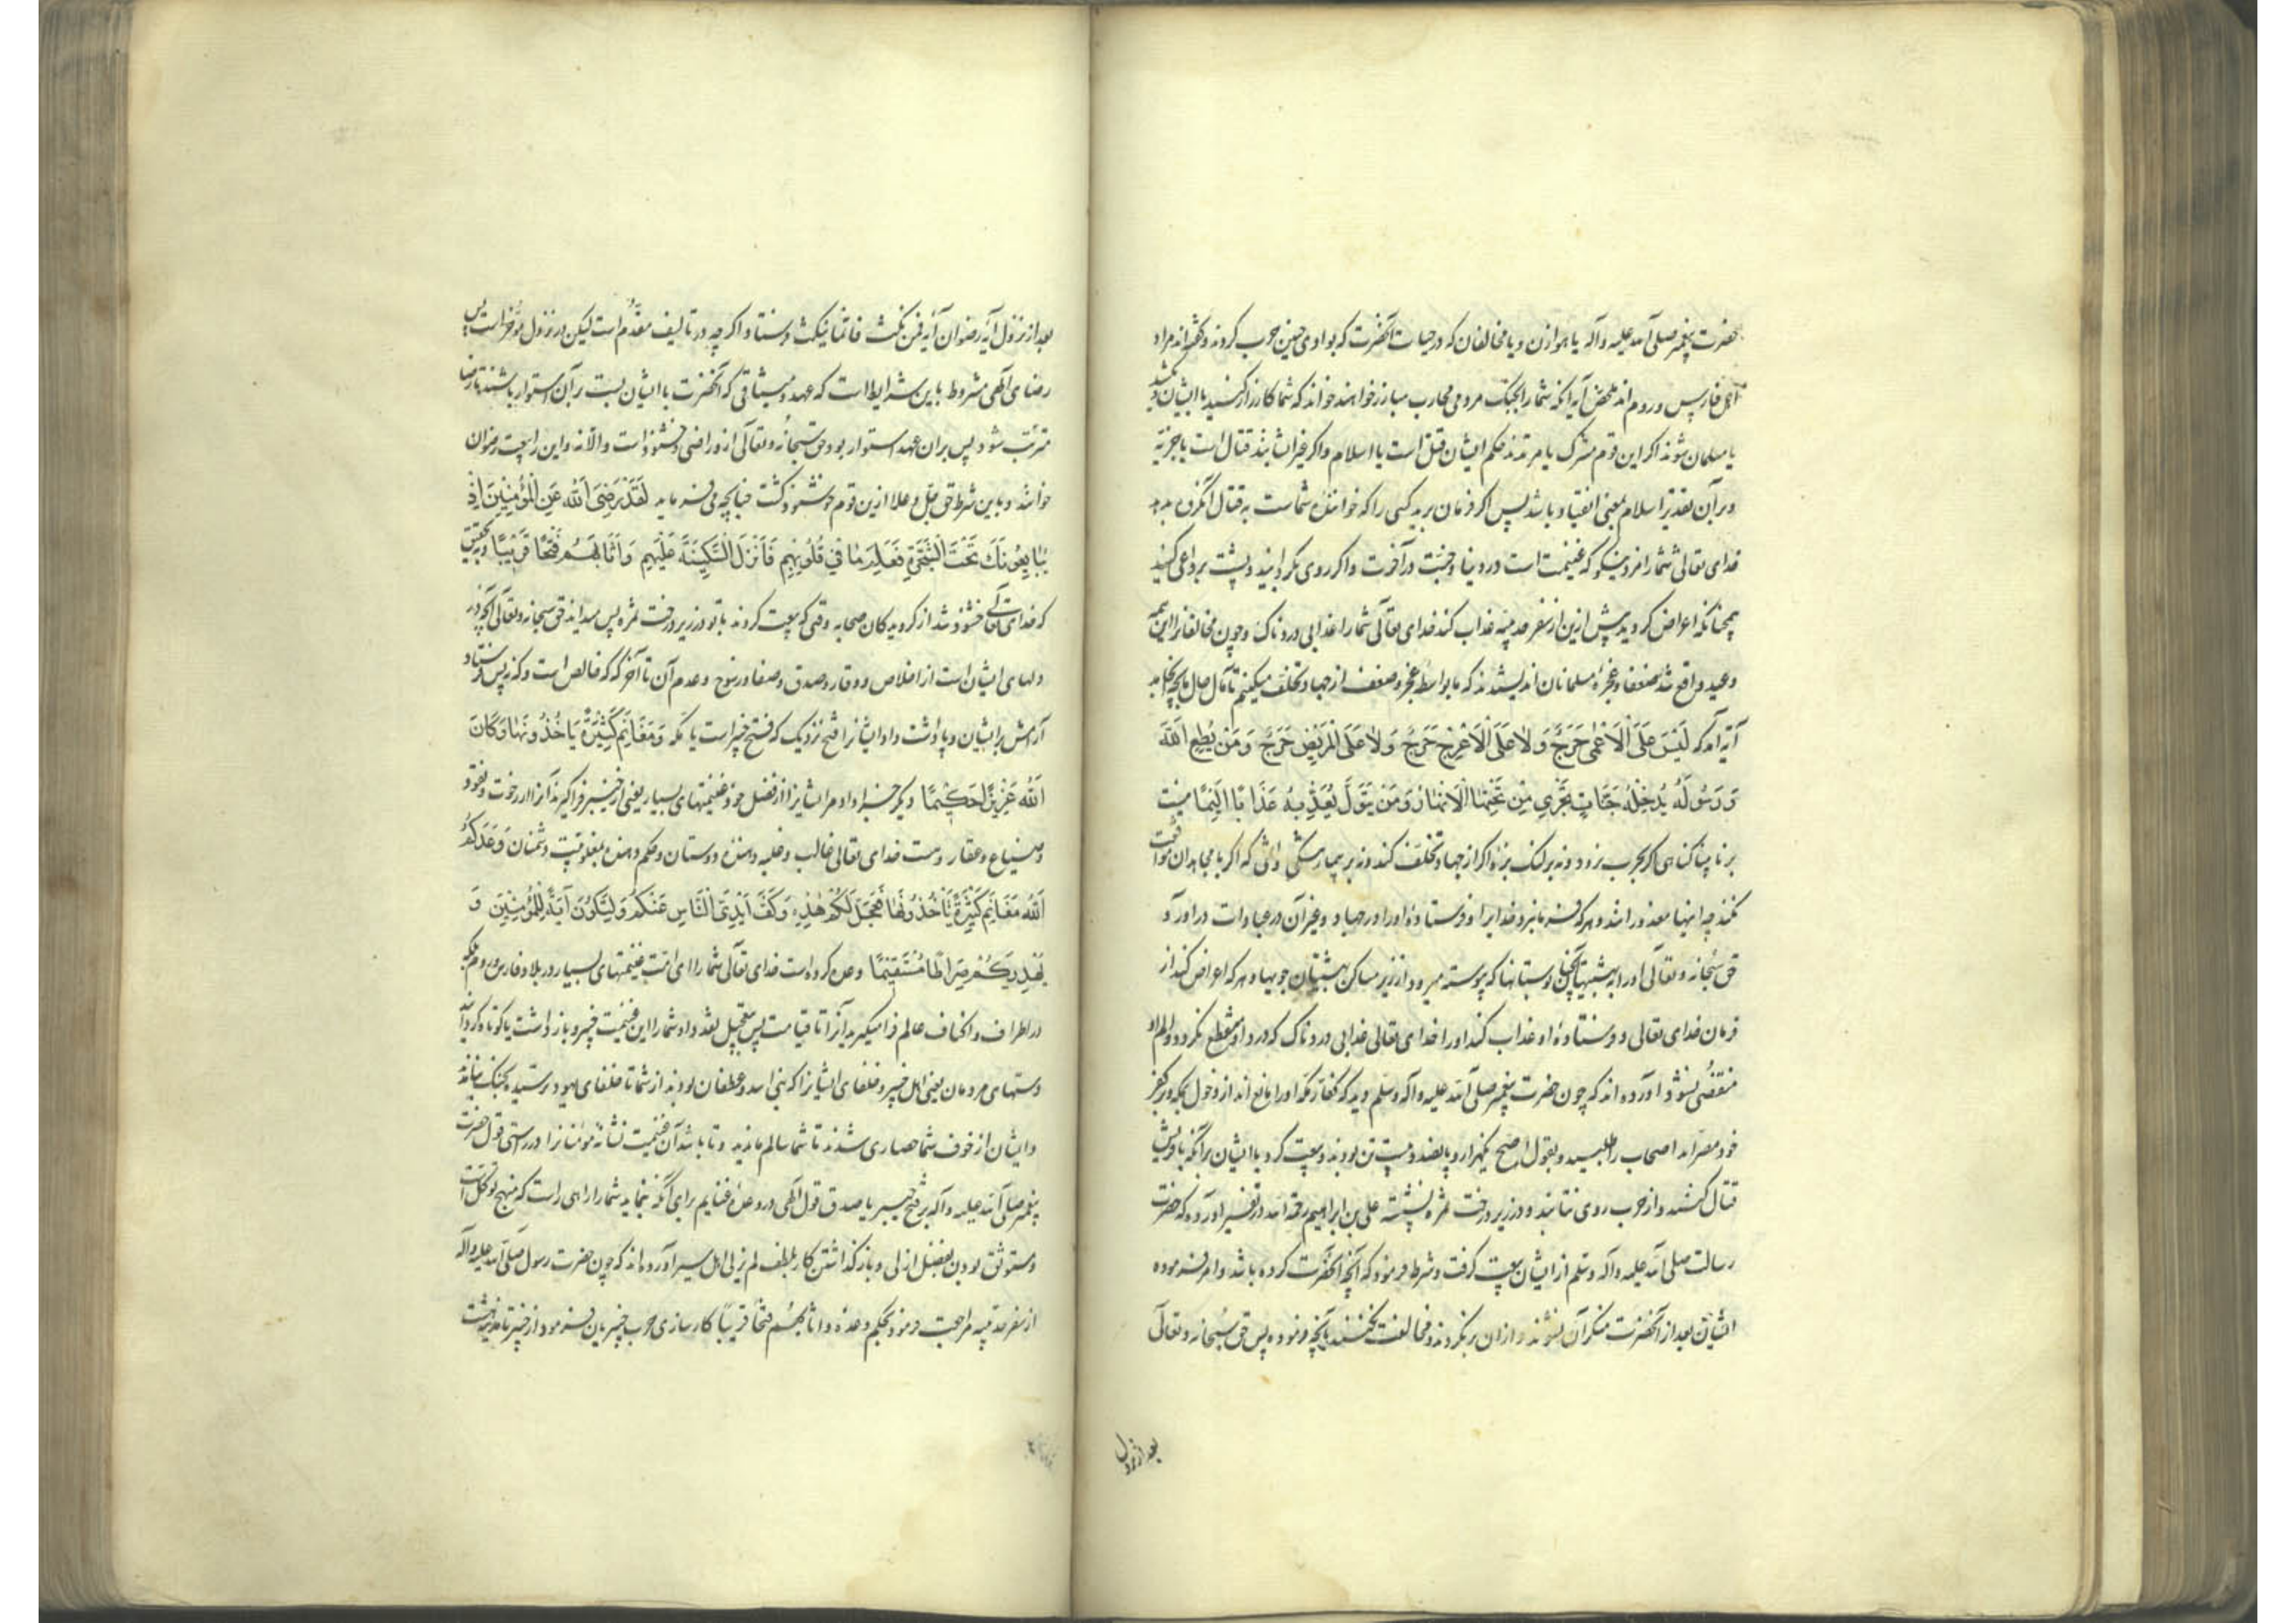 حضرت پیغمبر صلی الله علیه وآله یا هوازن و یا مخالفان که در حیات آنحضرت که بوادی حنین حرب کردند و گفته‌اند مراد
اهل فارس و روم اند ملخص آیه آنکه شما را بجنگ مردمی محارب مبارز خواهند خواند که شما کارزار کنید با ایشان
یا مسلمان شوند اگر این قوم مشرک یا مرتدند حکم ایشان قتل است یا اسلام و اگر غیر ایشانند قتال است یا جزیه
و برآن تقدیر اسلام بمعنی انقیاد باشد پس اگر فرمان برید کسی را که خوانندۀ شماست به قتال آنگروه بدهد
خدای تعالی شما را مزد نیکو که غنیمت است در دنیا و جنت در آخرت و اگر روی بگردانید و پشت برداعی کنید
همچنانکه اعراض کردید پیش ازین از سفر حدیبیه عذاب کند خدای تعالی شما را عذابی دردناک و چون مخالفانرا این همه
وعید واقع شد ضعفا و عجزۀ مسلمانان اندیشیدند که ما بواسطه عجز و ضعف از جهاد تخلف میکنیم تا مآل حال ما بچه انجامد
آیه آمد که لَیْسَ عَلَی الْاَعْمٰی حَرَجٌ وَلَا عَلَی الْاَعْرَجِ حَرَجٌ وَلَا عَلَی الْمَرِیضِ حَرَجٌ وَمَنْ یُطِعِ اللّٰهَ
وَرَسُولَهُ یُدْخِلْهُ جَنَّاتٍ تَجْرِی مِنْ تَحْتِهَا الْاَنْهَارُ وَمَنْ یَتَوَلَّ یُعَذِّبْهُ عَذَابًا اَلِیمًا نیست
بر نابینا گناهی اگر بحرب نرود و نه بر لنگ بزه اگر از جهاد تخلف کند و نه بر بیمار که اگر با مجاهدان
نکنند چه اینها معذورانند و هر که فرمانبرد خدایرا و فرستادۀ او را در جهاد و غیر آن در عبادات درآورد
حق سبحانه و تعالی او را به بهشتها و بستانها که پیوسته میرود از زیر مساکن بهشتیان جویها و هر که اعراض کند از
فرمان خدای تعالی و فرستادۀ او عذاب کند او را خدای تعالی عذابی دردناک که درد او منقطع نگردد و الم او
منقضی نشود آورده‌اند که چون حضرت پیغمبر صلی الله علیه وآله وسلم دید که کفار مکه او را مانع اند از دخول مکه و بر کفر
خود مصراند اصحاب را طلبید و بقول اصح یکهزار و پانصد و بیست تن بودند و بیعت کرد با ایشان برآنکه با قریش
قتال کنند و از حرب روی نتابند و در زیر درخت ثمره نشسته علی بن ابراهیم رحمة الله در تفسیر آورده که حضرت
رسالت صلی الله علیه وآله وسلم از ایشان بیعت گرفت و شرط فرمود که آنچه آنحضرت کرده باشد و امر فرموده
ایشان بعد از آنحضرت منکر آن نشوند و ازان برنگردند و مخالفت نکنند بآنچه فرموده پس حق سبحانه و تعالی
بعد از نزول
بعد از نزول آیه رضوان آیه فمن نکث فانما ینکث فرستاد اگرچه در تألیف مقدّم است لیکن در نزول مؤخر است پس
رضای الهی مشروط باین شرایط است که عهد و میثاقی که آنحضرت با ایشان بست برآن استوار باشند تا رضا
مترتب شود پس بران عهد استوار بود حق سبحانه و تعالی از و راضی و خشنود است والا نه و این را بیعت رضوان
خوانند و باین شرط حق جل و علا ازین قوم خوشنود گشت چنانچه می‌فرماید لَقَدْ رَضِیَ اللّٰهُ عَنِ الْمُؤْمِنِینَ اِذْ
یُبَایِعُونَکَ تَحْتَ الشَّجَرَةِ فَعَلِمَ مَا فِی قُلُوبِهِمْ فَاَنْزَلَ السَّکِینَةَ عَلَیْهِمْ وَاَثَابَهُمْ فَتْحًا قَرِیبًا بدرستی
که خدای تعالی خشنود شد از گرویدگان صحابه وقتی که بیعت کردند با تو در زیر درخت ثمره پس میداند حق سبحانه و تعالی آنچه در
دلهای ایشان است از اخلاص و وقار و صدق و صفا و رسوخ و عدم آن تا آخر که که خالص است و که نه پس فرستاد
آرامش بر ایشان و پاداشت داد ایشانرا فتح نزدیک که فتح خیبر است یا مکه وَمَغَانِمَ کَثِیرَةً یَاْخُذُونَهَا وَکَانَ
اللّٰهُ عَزِیزًا حَکِیمًا و دیگر جزا داد مر ایشانرا از فضل خود غنیمتهای بسیار یعنی از خیبر فراگیرند آنرا از رخوت و نقود
و ضیاع و عقار و هست خدای تعالی غالب و غلبه دهندۀ دوستان و حکم دهنده بمغلوبیت دشمنان وَعَدَکُمُ
اللّٰهُ مَغَانِمَ کَثِیرَةً تَاْخُذُونَهَا فَعَجَّلَ لَکُمْ هٰذِهِ وَکَفَّ اَیْدِیَ النَّاسِ عَنْکُمْ وَلِتَکُونَ اٰیَةً لِلْمُؤْمِنِینَ وَ
یَهْدِیَکُمْ صِرَاطًا مُسْتَقِیمًا وعده کرده است خدای تعالی شما را ای امت غنیمتهای بسیار در بلاد فارس و روم بلکه
در اطراف و اکناف عالم فرا میگیرید آنرا تا قیامت پس بتعجیل بنقد داد شما را این غنیمت خیبر و باز داشت یا کوتاه گردانید
دستهای مردمان یعنی اهل خیبر و خلفای ایشانرا که بنی اسد و غطفان بودند از شما تا خلفای یهود ترسیده بجنگ
و ایشان از خوف شما حصاری شدند تا شما سالم ماندید و تا باشد آن غنیمت نشانۀ مؤمنانرا در راستی قول حضرت
پیغمبر صلی الله علیه وآله بر فتح خیبر یا صدق قول الهی در وعدۀ غنایم برای آنکه بنماید شما را راهی راست که منهج توکل است
و مستوثق بودن بفضل ازلی و باز گذاشتن کار بلطف لم یزلی اهل سیر آورده‌اند که چون حضرت رسول صلی الله علیه وآله
از سفر حدیبیه مراجعت فرمود بحکم وعدۀ و اثابهم فتحا قریبا کارسازی حرب خیبریان فرمود از خیبر تا مدینه هشت